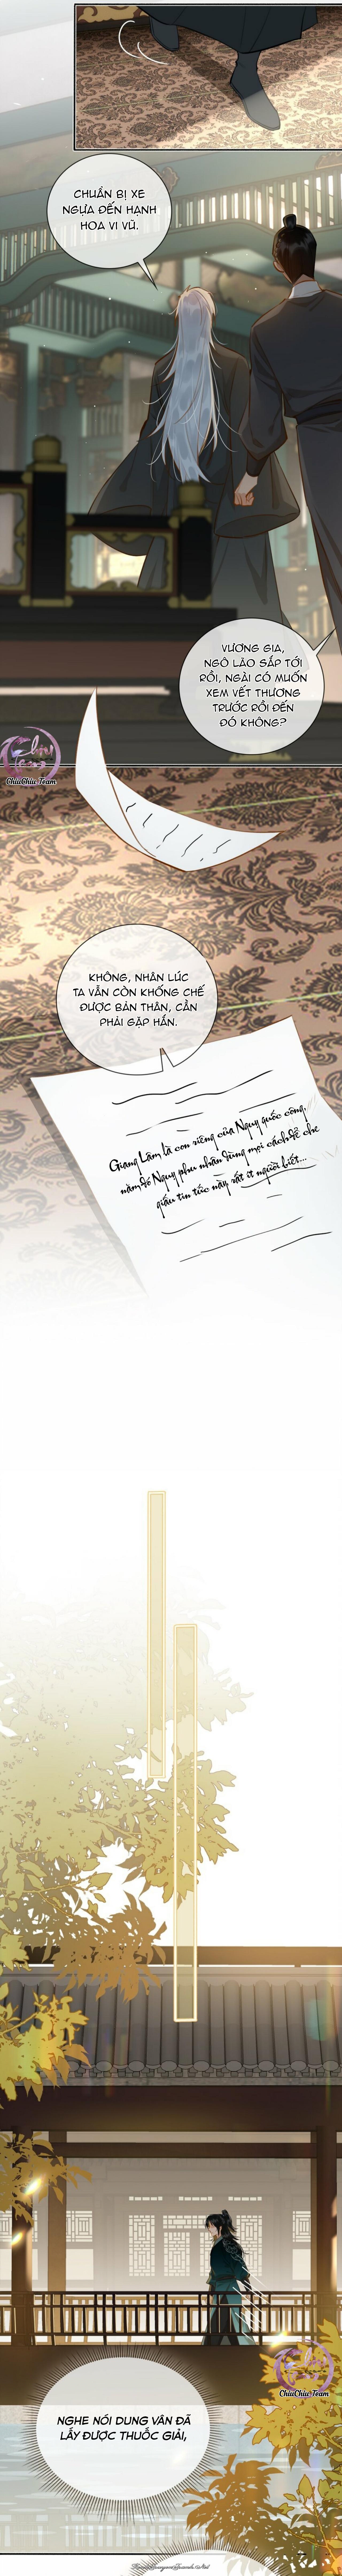 CHUẨN BỊ XE
NGỰA ĐẾN HẠNH
HOA VI VŨ.
VƯƠNG GIA,
NGÔ LÃO SẮP TỚI
RỒI, NGÀI CÓ MUỐN
XEM VẾT THƯƠNG
TRƯỚC RỒI ĐẾN
ĐÓ KHÔNG?
ChiuChiu Team
KHÔNG, NHÂN LÚC
TA VẪN CÒN KHỐNG CHẾ
ĐƯỢC BẢN THÂN, CẦN
PHẢI GẶP HẮN.
Giang Lâm là con riêng của Nguy quốc công,
năm đó Nguy phu nhân dùng mọi cách để che
giấu tin tức này, rất ít người biết...
ChiuChiu Team
NGHE NÓI DUNG VÂN ĐÃ
LẤY ĐƯỢC THUỐC GIẢI,